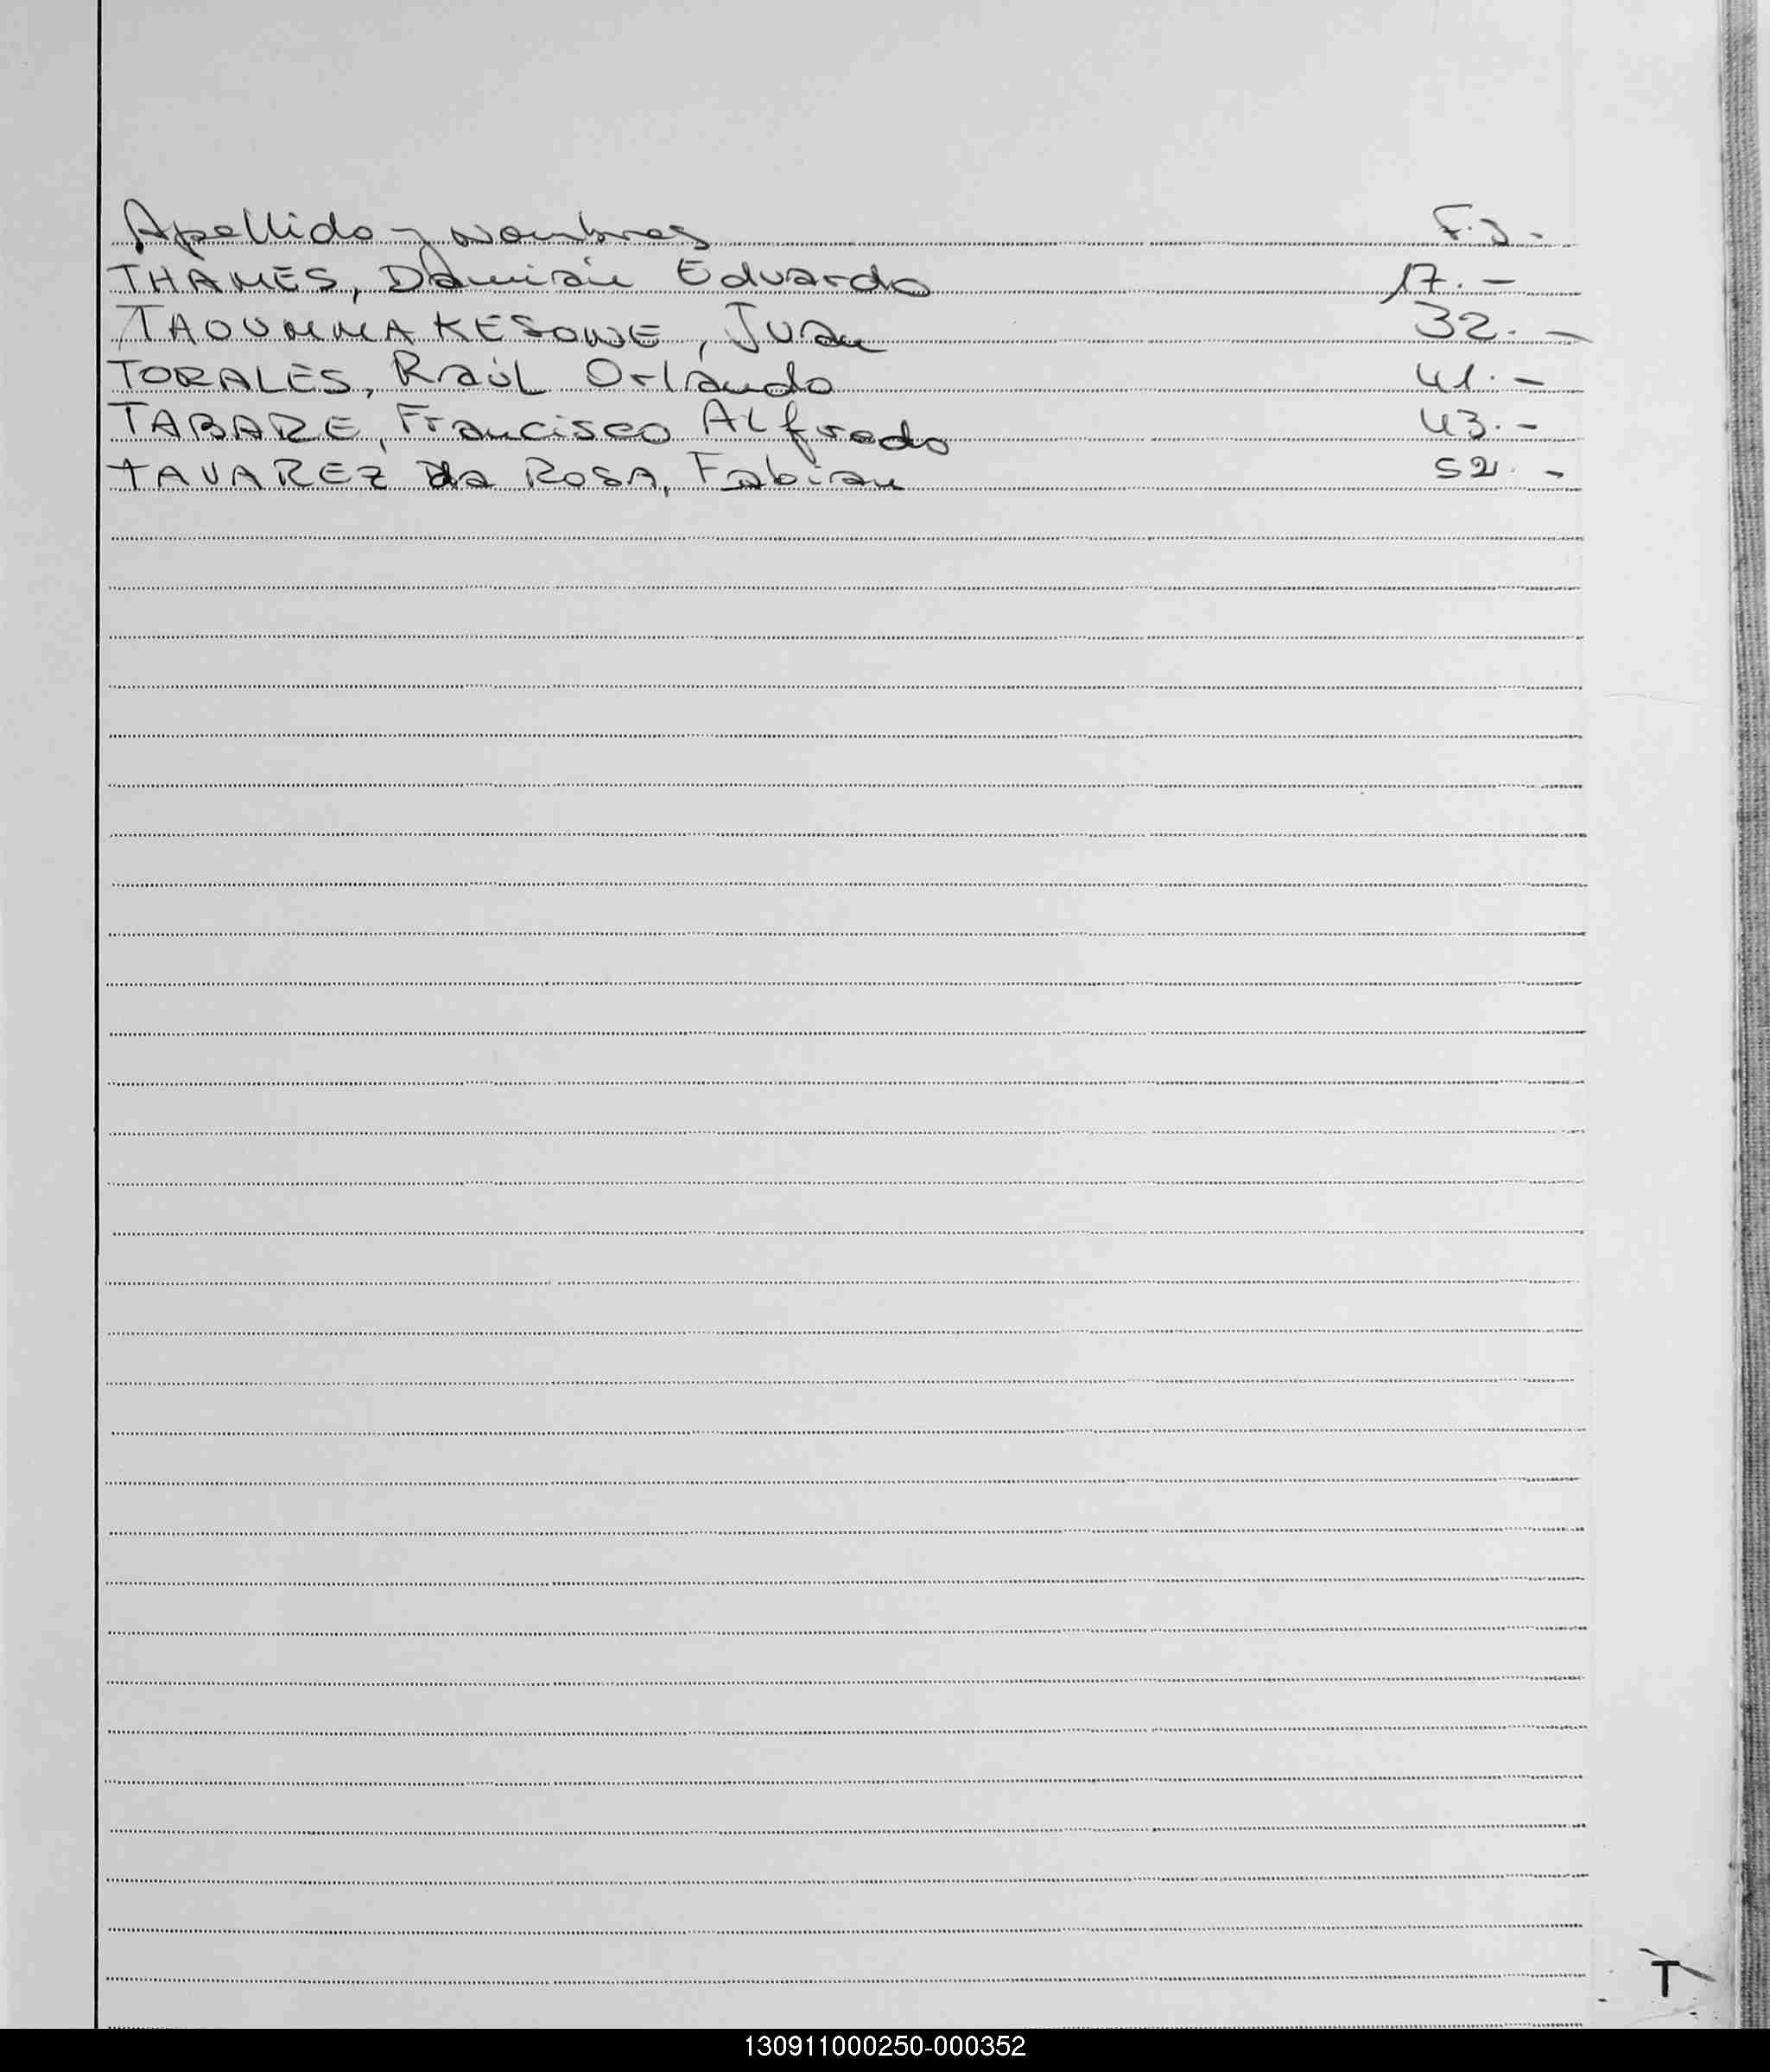 Apellido y Nombres F.J.-
THAMES, Damián Eduardo 17.-
TAOUMMAKESOWE, Juan 32.-
TORALES, Raúl Orlando 41.-
TABARE, Francisco Alfredo 43.-
TAVAREZ da ROSA, Fabian 52.-
T
130911000250-000352